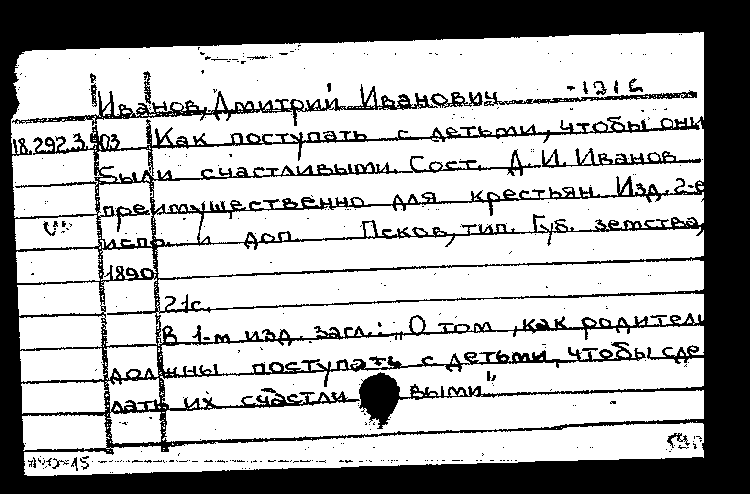 Иванов, Дмитрий Иванович
18.292.3.903 Как поступать с детьми, чтобы они
были счастливыми. Сост. Д. И. Иванов
преимущественно для крестьян. Изд. 2-е
испр. и доп. Псков, тип. Губ. земства,
1890
21с.
В 1-м изд. загл.: „О том, как родители
должны поступать с детьми, чтобы сде
лать их счастли выми"